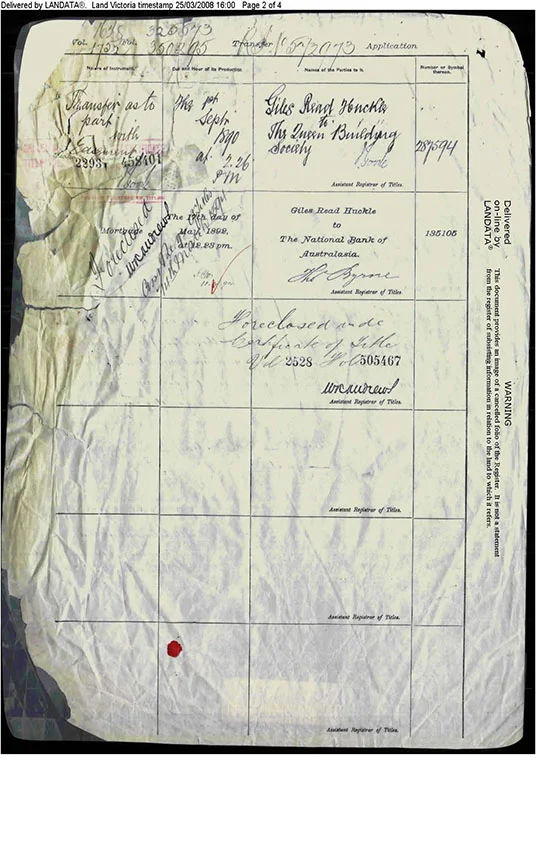 Delivered by LANDATA®. Land Victoria timestamp 25/03/2008 16:00 Page 2 of 4
Vol. Vol.
Transfer Application
Nature of Instrument.
Day and Hour of its Production
Names of the Parties to it.
Number or Symbol thereon.
Transfer as to
part
with
Easement
2293 458401
The 1st
Septr
1890
at 2.26
P M
Giles Read Huckle
to
The Queen Building
Society
Assistant Registrar of Titles.
787594
Foreclosed
WKAndrews
Mortgage
The 17th day of
May 1892,
at 12.23 pm.
Giles Read Huckle
to
The National Bank of
Australasia.
Tho Byrne
Assistant Registrar of Titles.
135105
Foreclosed vide
Certificate of Title
Vol 2528 Fol 505467
WKAndrews
Assistant Registrar of Titles.
Assistant Registrar of Titles.
Assistant Registrar of Titles.
Assistant Registrar of Titles.
Delivered
on-line by
LANDATA®
WARNING
This document provides an image of a cancelled folio of the Register. It is not a statement
from the register of subsisting information in relation to the land to which it refers.